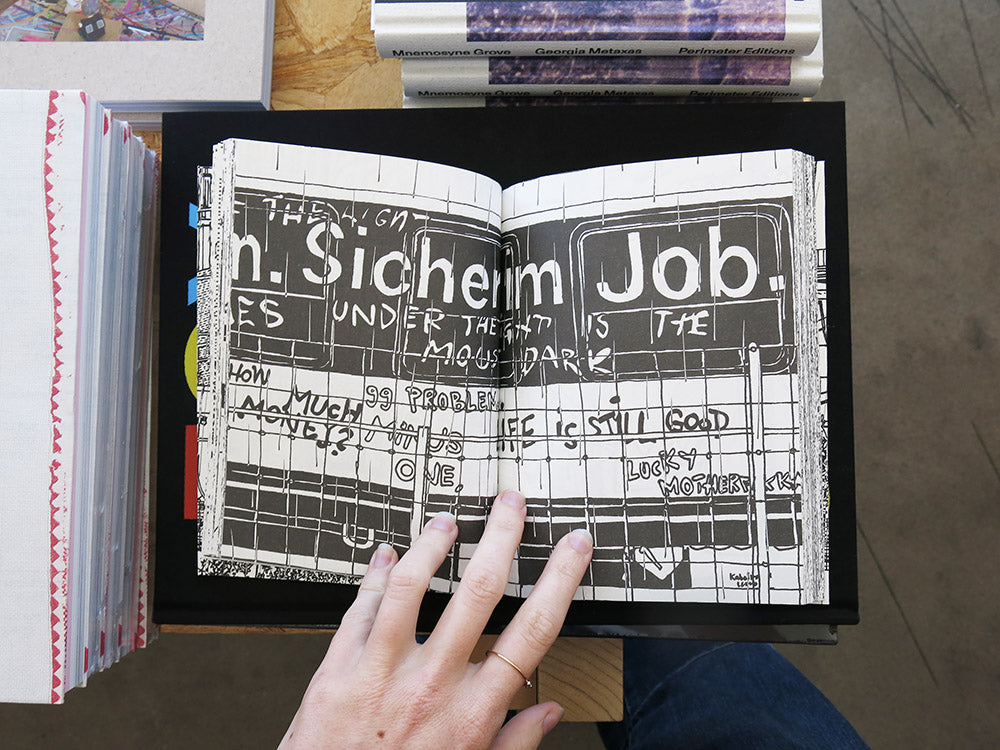 Mnemosyne Grove Georgia Metaxas Perimeter Editions
Mnemosyne Grove Georgia Metaxas Perimeter Editions
THE
m. Sicher im Job.
UNDER THE IS THE
DARK
HOW
MUCH
MONEY?
99 PROBLEM
MINUS
ONE.
LIFE IS STILL GOOD
LUCKY